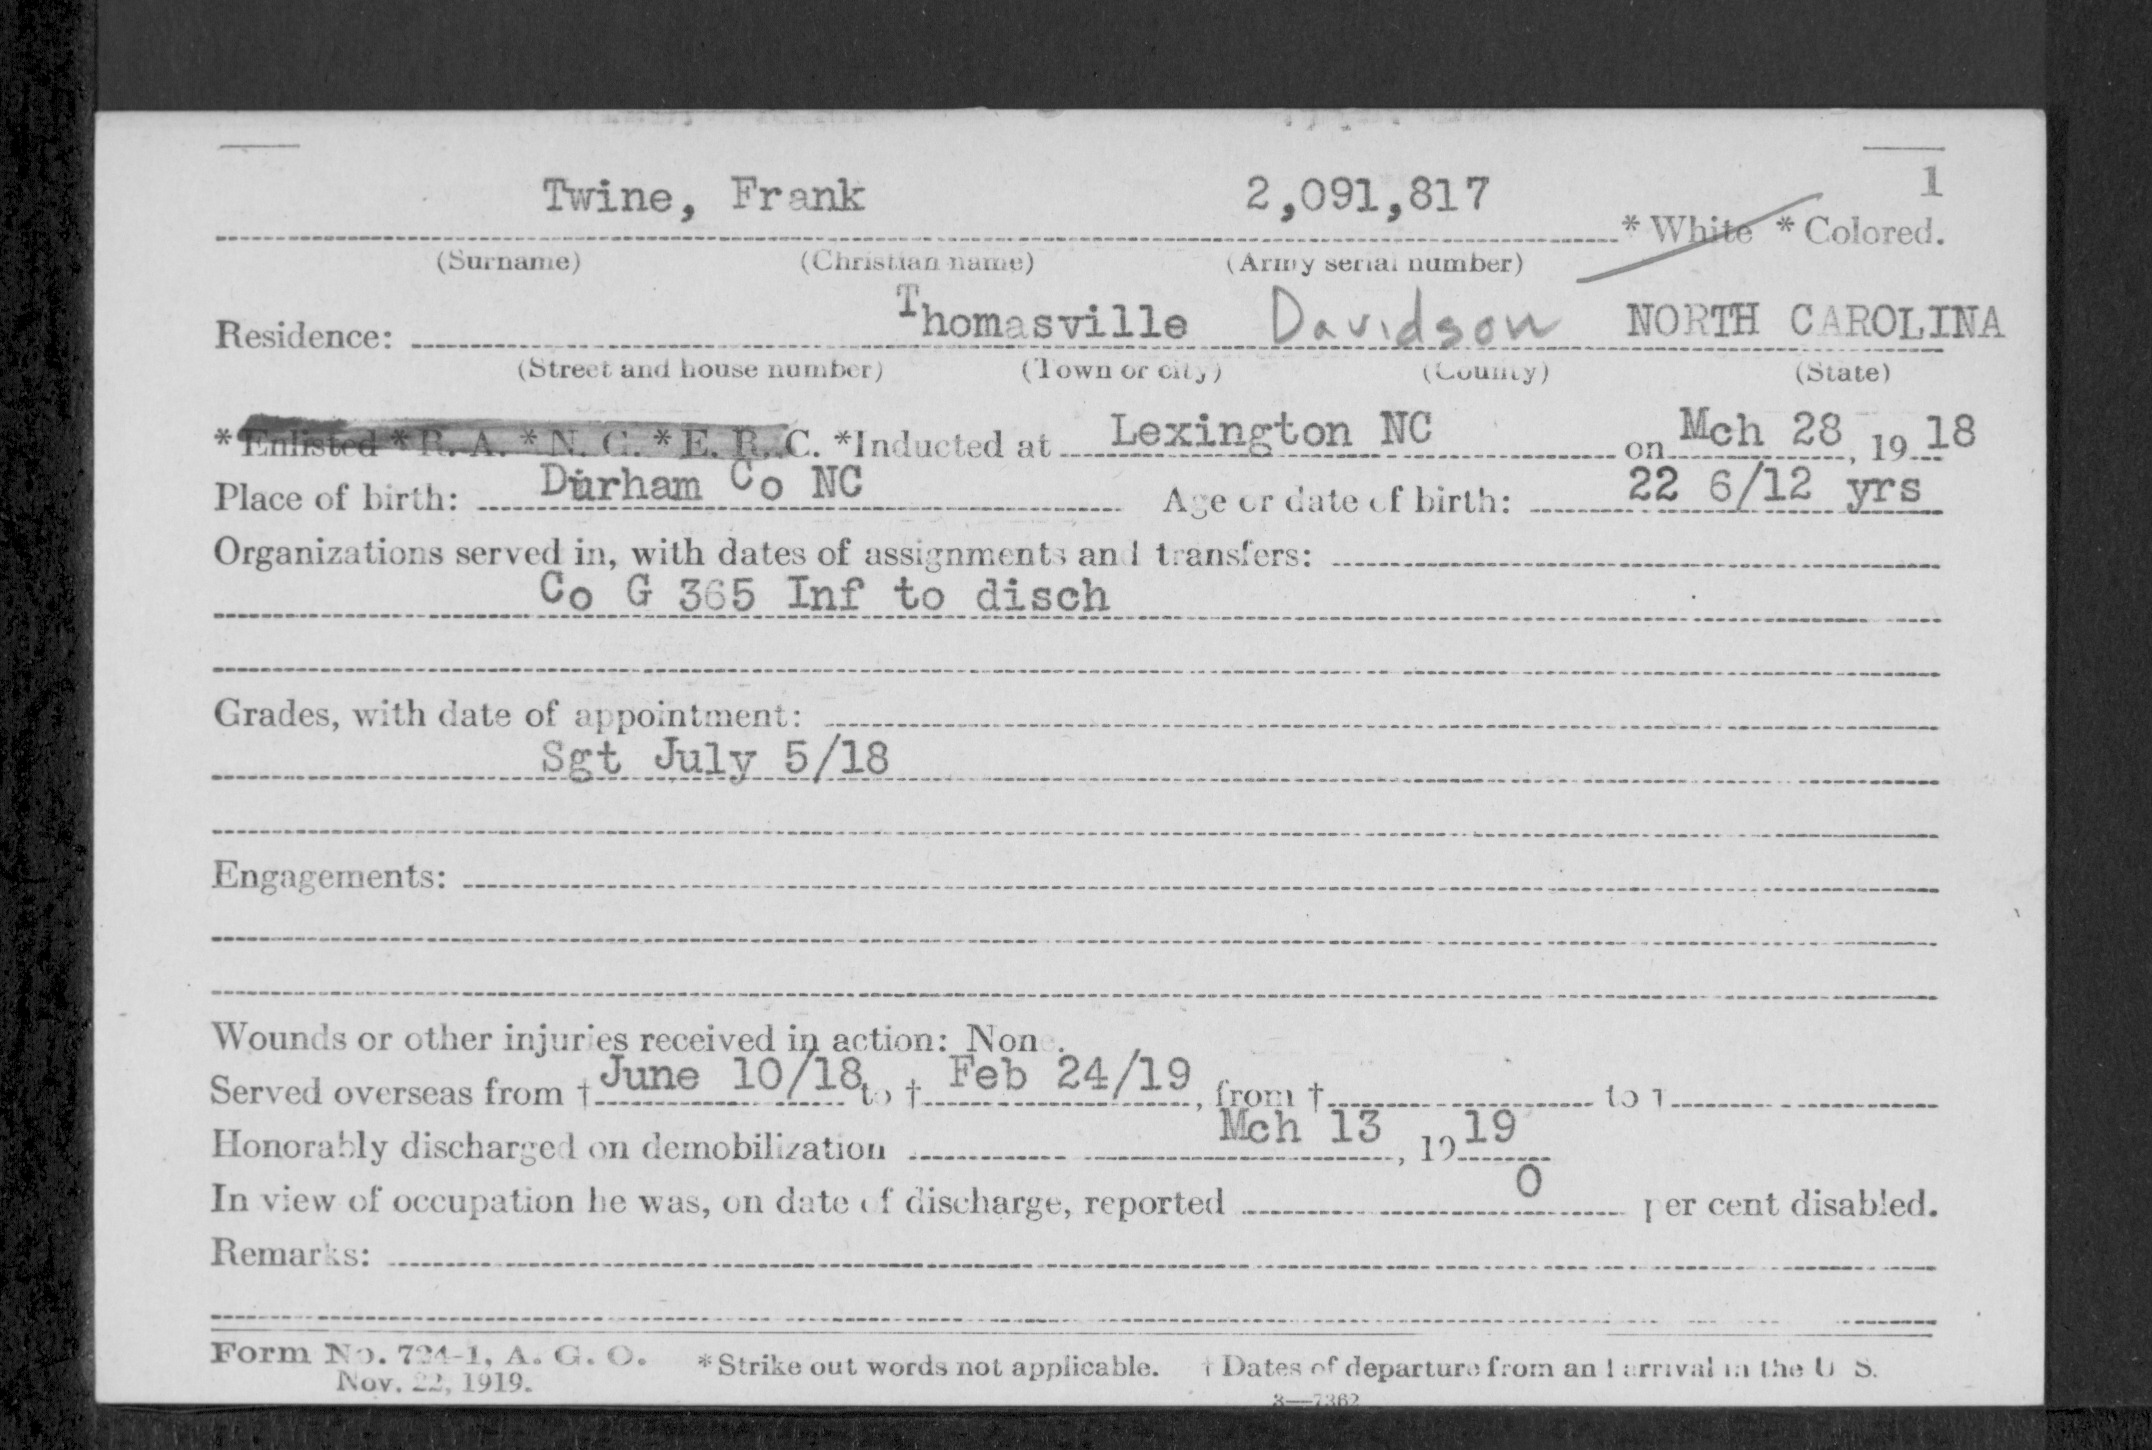 1
Twine, Frank 2,091,817 * White * Colored.
(Surname) (Christian name) (Army serial number)
Residence: Thomasville Davidson NORTH CAROLINA
(Street and house number) (Town or city) (County) (State)
* Enlisted * R. A. * N. G. * E. R. C. *Inducted at Lexington NC on Mch 28, 19 18
Place of birth: Durham Co NC Age or date of birth: 22 6/12 yrs
Organizations served in, with dates of assignments and transfers:
Co G 365 Inf to disch
Grades, with date of appointment:
Sgt July 5/18
Engagements:
Wounds or other injuries received in action: None.
Served overseas from † June 10/18 to † Feb 24/19, from † to †
Honorably discharged on demobilization Mch 13, 19 19
In view of occupation he was, on date of discharge, reported 0 per cent disabled.
Remarks:
Form No. 724-1, A. G. O. * Strike out words not applicable. † Dates of departure from and arrival in the U S.
Nov. 22, 1919.
3—7362